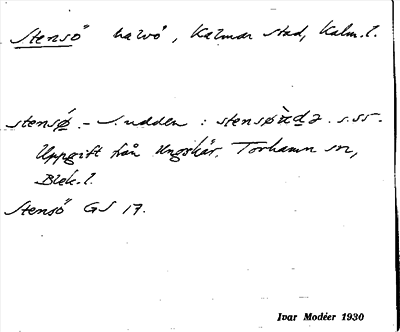 Stensö halvö, Kalmar stad, Kalm. l.
stensǿ. – S. udden : stensøùdə. s. 55.
Uppgift från Ungskär, Torhamn sn,
Blek. l.
Stensö GS 17.
Ivar Modéer 1930